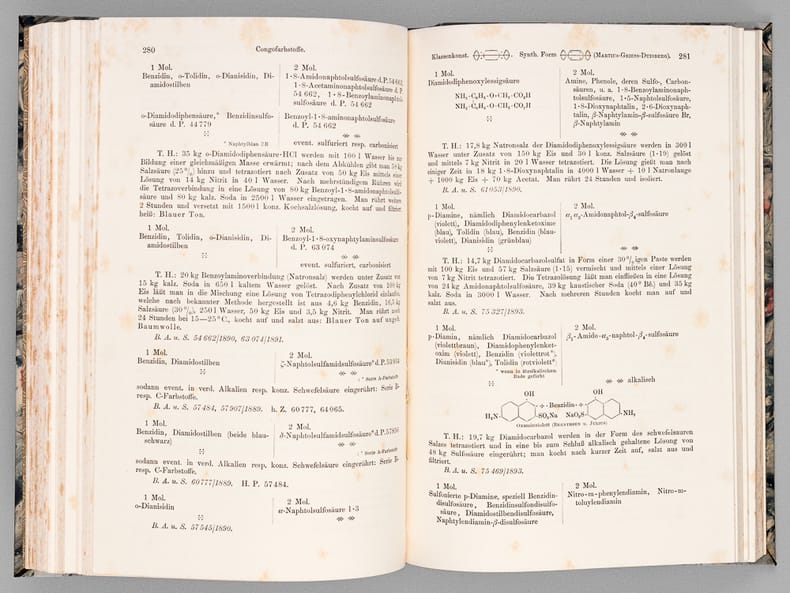 280 Congofarbstoffe.
1 Mol.
Benzidin, o-Tolidin, o-Dianisidin, Di-
amidostilben
2 Mol.
1·8-Amidonaphtolsulfosäure d. P. 54 662
1·8-Acetaminonaphtolsulfosäure d. P.
54 662, 1·8-Benzoylaminonaphtol-
sulfosäure d. P. 54 662
o-Diamidodiphensäure,* Benzidinsulfo-
säure d. P. 44 779
* Naphtylblau 2B
Benzoyl-1·8-aminonaphtolsulfosäure
d. P. 54 662
event. sulfuriert resp. carbonisiert
T. H.: 35 kg o-Diamidodiphensäure-HCl werden mit 100 l Wasser bis zur
Bildung einer gleichmäßigen Masse erwärmt; nach dem Abkühlen gibt man 50 kg
Salzsäure (25%) hinzu und tetrazotiert nach Zusatz von 50 kg Eis mittels einer
Lösung von 14 kg Nitrit in 40 l Wasser. Nach mehrstündigem Rühren wird
die Tetrazoverbindung in eine Lösung von 80 kg Benzoyl-1·8-amidonaphtolsulfo-
säure und 80 kg calz. Soda in 2500 l Wasser eingetragen. Man rührt weitere
2 Stunden und versetzt mit 1500 l konz. Kochsalzlösung, kocht auf und filtriert
heiß: Blauer Ton.
1 Mol.
Benzidin, Tolidin, o-Dianisidin, Di-
amidostilben
2 Mol.
Benzoyl-1·8-oxynaphtylaminsulfosäure
d. P. 63 074
event. sulfuriert, carbonisiert
T. H.: 20 kg Benzoylaminoverbindung (Natronsalz) werden unter Zusatz von
15 kg calz. Soda in 650 l kaltem Wasser gelöst. Nach Zusatz von 100 kg
Eis läßt man in die Mischung eine Lösung von Tetrazodiphenylchlorid einlaufen,
welche nach bekannter Methode hergestellt ist aus 4,6 kg Benzidin, 16,5 kg
Salzsäure (30%), 250 l Wasser, 50 kg Eis und 3,5 kg Nitrit. Man rührt noch
24 Stunden bei 15—25° C., kocht auf und salzt aus: Blauer Ton auf ungeb.
Baumwolle.
B. A. u. S. 54 662/1890, 63 074/1891.
1 Mol.
Benzidin, Diamidostilben
2 Mol.
ζ-Naphtolsulfamidsulfosäure* d. P. 53 934
* Serie A-Farbstoffe
sodann event. in verd. Alkalien resp. konz. Schwefelsäure eingerührt: Serie B-
resp. C-Farbstoffe.
B. A. u. S. 57 484, 57 907/1889. h. Z. 60 777, 64 065.
1 Mol.
Benzidin, Diamidostilben (beide blau-
schwarz)
2 Mol.
δ-Naphtolsulfamidsulfosäure* d. P. 57 856
* Serie A-Farbstoffe
sodann event. in verd. Alkalien resp. konz. Schwefelsäure eingerührt: Serie B-
resp. C-Farbstoffe.
B. A. u. S. 60 777/1889. H. P. 57 484.
1 Mol.
o-Dianisidin
2 Mol.
α-Naphtolsulfosäure 1·3
B. A. u. S. 57 545/1890.
Klassenkonst. Synth. Form (Martius-Griess-Duisberg). 281
1 Mol.
Diamidodiphenoxylessigsäure
NH₂·C₆H₃·O·CH₂·CO₂H
NH₂·C₆H₃·O·CH₂·CO₂H
2 Mol.
Amine, Phenole, deren Sulfo-, Carbon-
säuren, u. a. 1·8-Benzoylaminonaph-
tolsulfosäure, 1·5-Naphtolsulfosäure,
1·8-Dioxynaphtalin, 2·6-Dioxynaph-
talin, β-Naphtylamin-β-sulfosäure Br,
β-Naphtylamin
T. H.: 17,8 kg Natronsalz der Diamidodiphenoxylessigsäure werden in 300 l
Wasser unter Zusatz von 150 kg Eis und 30 l konz. Salzsäure (1·19) gelöst
und mittels 7 kg Nitrit in 20 l Wasser tetrazotiert. Die Lösung gießt man nach
einiger Zeit in 18 kg 1·8-Dioxynaphtalin in 4000 l Wasser + 10 l Natronlauge
+ 1000 kg Eis + 70 kg Acetat. Man rührt 24 Stunden und isoliert.
B. A. u. S. 61 053/1890.
1 Mol.
p-Diamine, nämlich Diamidocarbazol
(violett), Diamidodiphenylenketoxime
(blau), Tolidin (blau), Benzidin (blau-
violett), Dianisidin (grünblau)
2 Mol.
α₁ α₄-Amidonaphtol-β₄-sulfosäure
T. H.: 14,7 kg Diamidocarbazolsulfat in Form einer 30%igen Paste werden
mit 100 kg Eis und 57 kg Salzsäure (1·15) vermischt und mittels einer Lösung
von 7 kg Nitrit tetrazotiert. Die Tetrazolösung läßt man einfließen in eine Lösung
von 24 kg Amidonaphtolsulfosäure, 39 kg kaustischer Soda (40° Bé.) und 35 kg
calz. Soda in 3000 l Wasser. Nach mehreren Stunden kocht man auf und
salzt aus.
B. A. u. S. 75 327/1893.
1 Mol.
p-Diamin, nämlich Diamidocarbazol
(violettbraun), Diamidophenylenket-
oxim (violett), Benzidin (violettrot*),
Dianisidin (blau*), Tolidin (rotviolett*
* wenn in essigsalkalischem
Bade gefärbt
2 Mol.
β₁-Amido-α₃-naphtol-β₄-sulfosäure
alkalisch
OH OH
H₂N SO₃Na ·Benzidin· NaO₃S NH₂
Oxaminviolett (Bernthsen u. Julius)
T. H.: 19,7 kg Diamidocarbazol werden in der Form des schwefelsauren
Salzes tetrazotiert und in eine bis zum Schluß alkalisch gehaltene Lösung von
48 kg Sulfosäure eingerührt; man kocht nach kurzer Zeit auf, salzt aus und
filtriert.
B. A. u. S. 75 469/1893.
1 Mol.
Sulfonierte p-Diamine, speziell Benzidin-
disulfosäure, Benzidinsulfondisulfo-
säure, Diamidostilbendisulfosäure,
Naphtylendiamin-β-disulfosäure
2 Mol.
Nitro-m-phenylendiamin, Nitro-m-
toluylendiamin